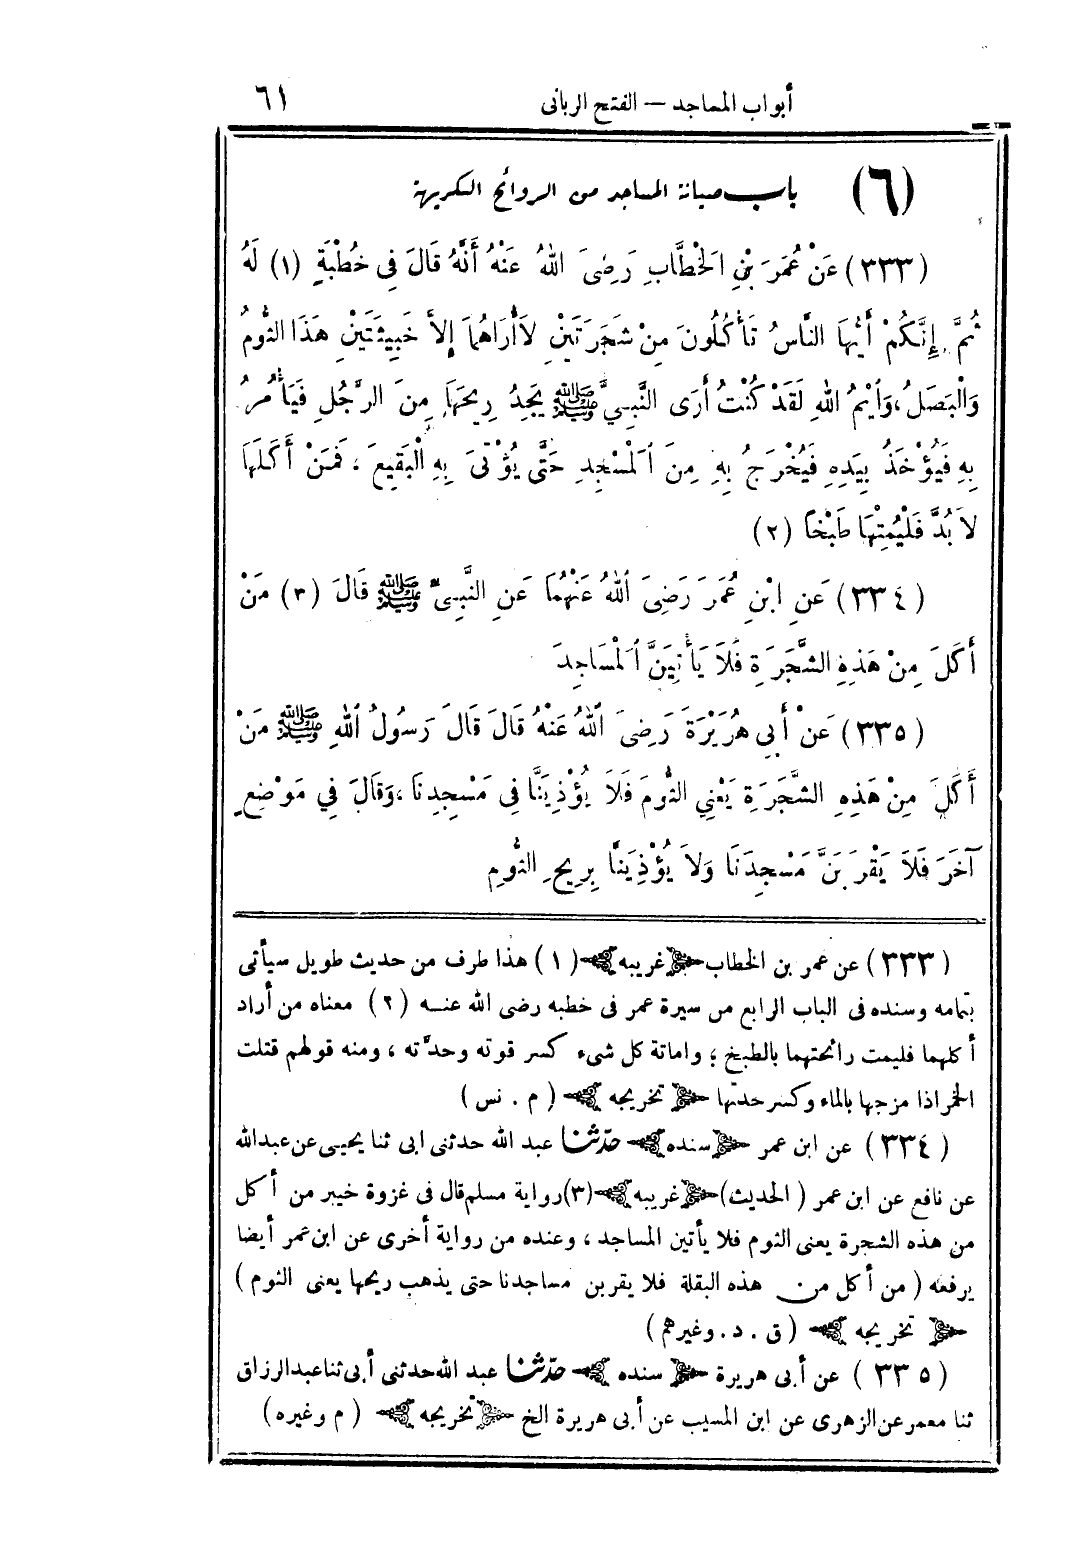 أبواب المساجد — الفتح الربانى ٦١
(٦) باب صيانة المساجد من الروائح الكريهة
(٣٣٣) عَنْ عُمَرَ بْنِ الْخَطَّابِ رَضِىَ اللهُ عَنْهُ أَنَّهُ قَالَ فِى خُطْبَةٍ (١) لَهُ
ثُمَّ إِنَّكُمْ أَيُّهَا النَّاسُ تَأْكُلُونَ مِنْ شَجَرَتَيْنِ لاَ أُرَاهُمَا إِلاَّ خَبِيثَتَيْنِ هَذَا الثُّومُ
وَالْبَصَلُ، وَأَيْمُ اللهِ لَقَدْ كُنْتُ أَرَى النَّبِيَّ ﷺ يَجِدُ رِيحَهَا مِنَ الرَّجُلِ فَيَأْمُرُ
بِهِ فَيُؤْخَذُ بِيَدِهِ فَيُخْرَجُ بِهِ مِنَ الْمَسْجِدِ حَتَّى يُؤْتَىَ بِهِ الْبَقِيعَ، فَمَنْ أَكَلَهَا
لاَ بُدَّ فَلْيُمِتْهَا طَبْخًا (٢)
(٣٣٤) عَنِ ابْنِ عُمَرَ رَضِىَ اللهُ عَنْهُمَا عَنِ النَّبِىِّ ﷺ قَالَ (٣) مَنْ
أَكَلَ مِنْ هَذِهِ الشَّجَرَةِ فَلاَ يَأْتِيَنَّ الْمَسَاجِدَ
(٣٣٥) عَنْ أَبِى هُرَيْرَةَ رَضِىَ اللهُ عَنْهُ قَالَ قَالَ رَسُولُ اللهِ ﷺ مَنْ
أَكَلَ مِنْ هَذِهِ الشَّجَرَةِ يَعْنِي الثُّومَ فَلاَ يُؤْذِيَنَّا فِى مَسْجِدِنَا، وَقَالَ فِي مَوْضِعٍ
آخَرَ فَلاَ يَقْرَبَنَّ مَسْجِدَنَا وَلاَ يُؤْذِيَنَّا بِرِيحِ الثُّومِ
(٣٣٣) عن عمر بن الخطاب ﴿غريبه﴾ (١) هذا طرف من حديث طويل سيأتى
بتمامه وسنده فى الباب الرابع من سيرة عمر فى خطبه رضى الله عنه (٢) معناه من أراد
أكلهما فليمت رائحتهما بالطبخ؛ واماتة كل شىء كسر قوته وحدَّته، ومنه قولهم قتلت
الخمر اذا مزجها بالماء وكسر حدتها ﴿تخريجه﴾ (م . نس)
(٣٣٤) عن ابن عمر ﴿سنده﴾ حدّثنا عبد الله حدثنى ابى ثنا يحيى عن عبد الله
عن نافع عن ابن عمر (الحديث) ﴿غريبه﴾ (٣) رواية مسلم قال فى غزوة خيبر من أكل
من هذه الشجرة يعنى الثوم فلا يأتين المساجد، وعنده من رواية أخرى عن ابن عمر أيضا
يرفعه (من أكل من هذه البقلة فلا يقربن مساجدنا حتى يذهب ريحها يعنى الثوم)
﴿تخريجه﴾ (ق . د . وغيرهم)
(٣٣٥) عن أبى هريرة ﴿سنده﴾ حدّثنا عبد الله حدثنى أبى ثنا عبد الرزاق
ثنا معمر عن الزهرى عن ابن المسيب عن أبى هريرة الخ ﴿تخريجه﴾ (م وغيره)